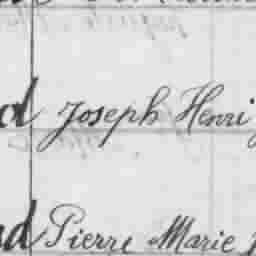 d Joseph Henri
d Pierre Marie